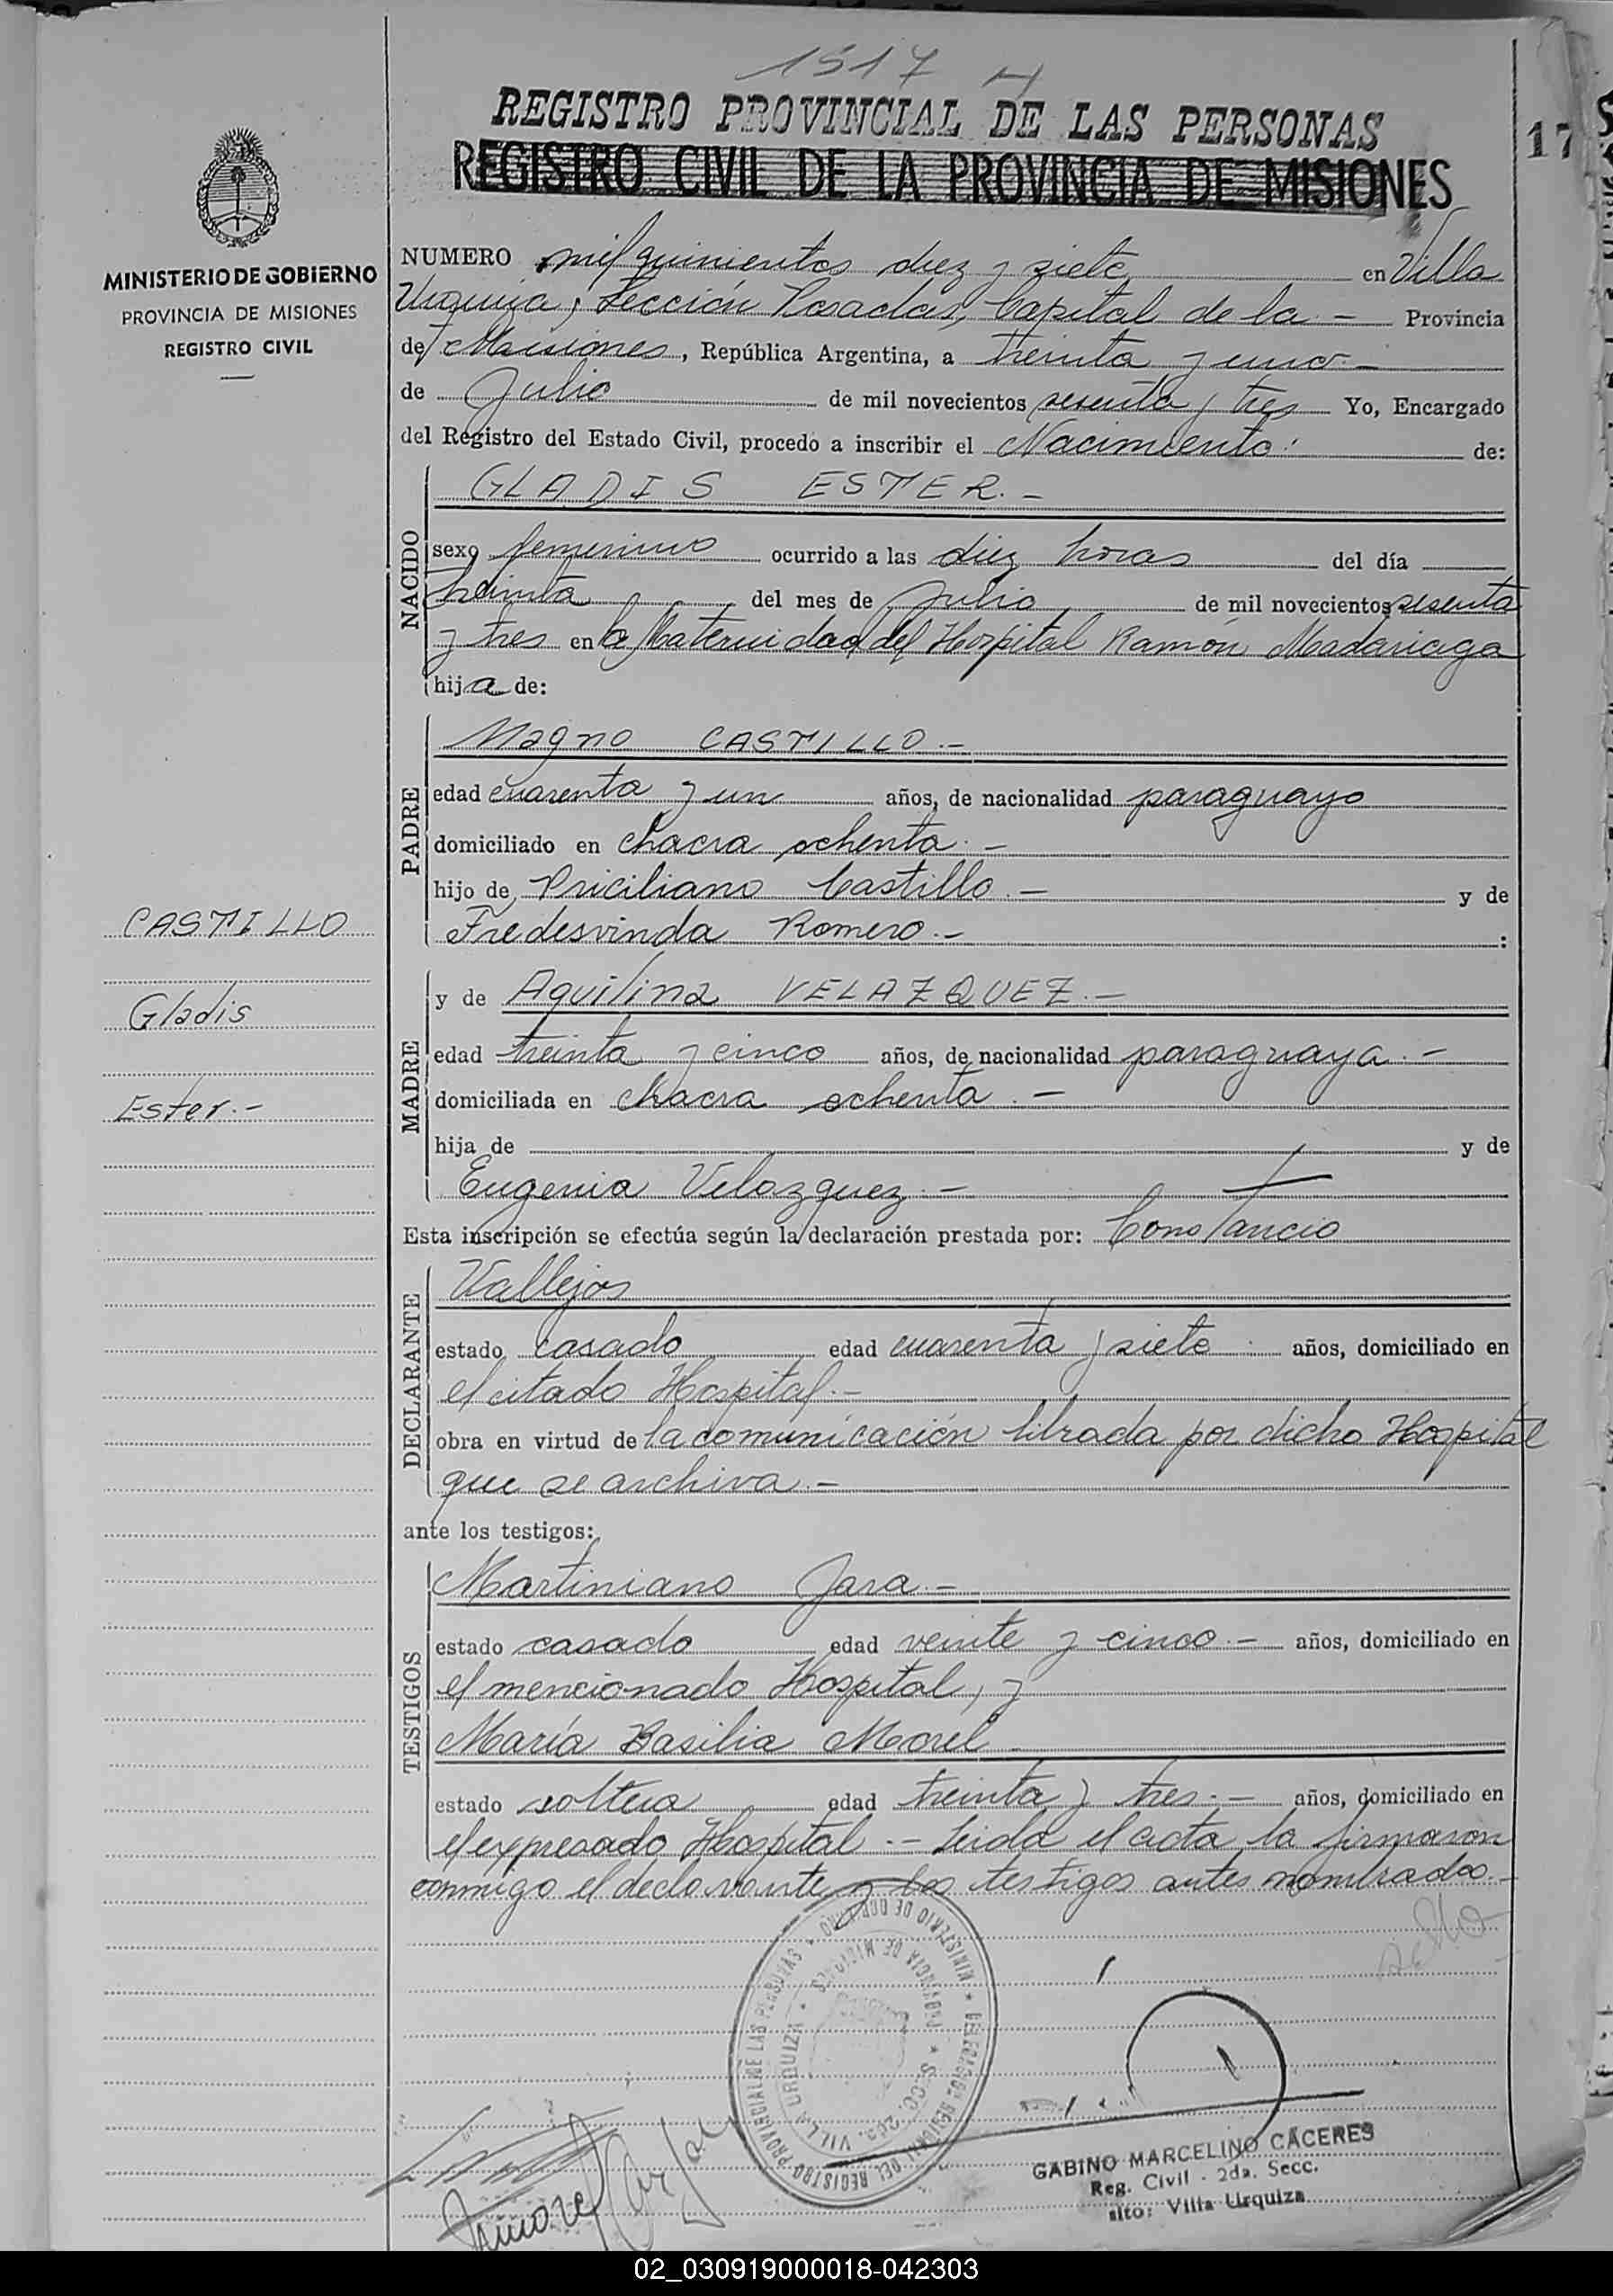 1517
REGISTRO PROVINCIAL DE LAS PERSONAS
REGISTRO CIVIL DE LA PROVINCIA DE MISIONES
17
MINISTERIO DE GOBIERNO
PROVINCIA DE MISIONES
REGISTRO CIVIL
NUMERO mil quinientos diez y siete en Villa
Urquiza, Sección Posadas, Capital de la - Provincia
de Misiones, República Argentina, a treinta y uno -
de Julio de mil novecientos sesenta y tres Yo, Encargado
del Registro del Estado Civil, procedo a inscribir el Nacimiento: de:
NACIDO
GLADIS ESTER.-
sexo femenino ocurrido a las diez horas del día
treinta del mes de Julio de mil novecientos sesenta
y tres en la Maternidad del Hospital Ramón Madariaga
hija de:
PADRE
Magno CASTILLO.-
edad cuarenta y un años, de nacionalidad paraguayo
domiciliado en chacra ochenta.-
hijo de Priciliano Castillo.- y de
Fredesvinda Romero.- :
CASTILLO
Gladis
Ester.-
MADRE
y de Aquilina VELAZQUEZ.-
edad treinta y cinco años, de nacionalidad paraguaya.-
domiciliada en chacra ochenta.-
hija de y de
Eugenia Velazquez.-
Esta inscripción se efectúa según la declaración prestada por: Constancio
DECLARANTE
Vallejos
estado casado edad cuarenta y siete años, domiciliado en
el citado Hospital.-
obra en virtud de la comunicación librada por dicho Hospital
que se archiva.-
ante los testigos:
TESTIGOS
Martiniano Jara.-
estado casado edad veinte y cinco.- años, domiciliado en
el mencionado Hospital, y
María Basilia Morel
estado soltera edad treinta y tres.- años, domiciliado en
el expresado Hospital.- Leida el acta la firmaron
conmigo el declarante y los testigos antes nombrados.-
MINISTERIO DE GOBIERNO * REGISTRO PROVINCIAL DE LAS PERSONAS
PROVINCIA DE MISIONES * SECC. 2da. VILLA URQUIZA *
GABINO MARCELINO CACERES
Reg. Civil - 2da. Secc.
sito: Villa Urquiza
02_030919000018-042303